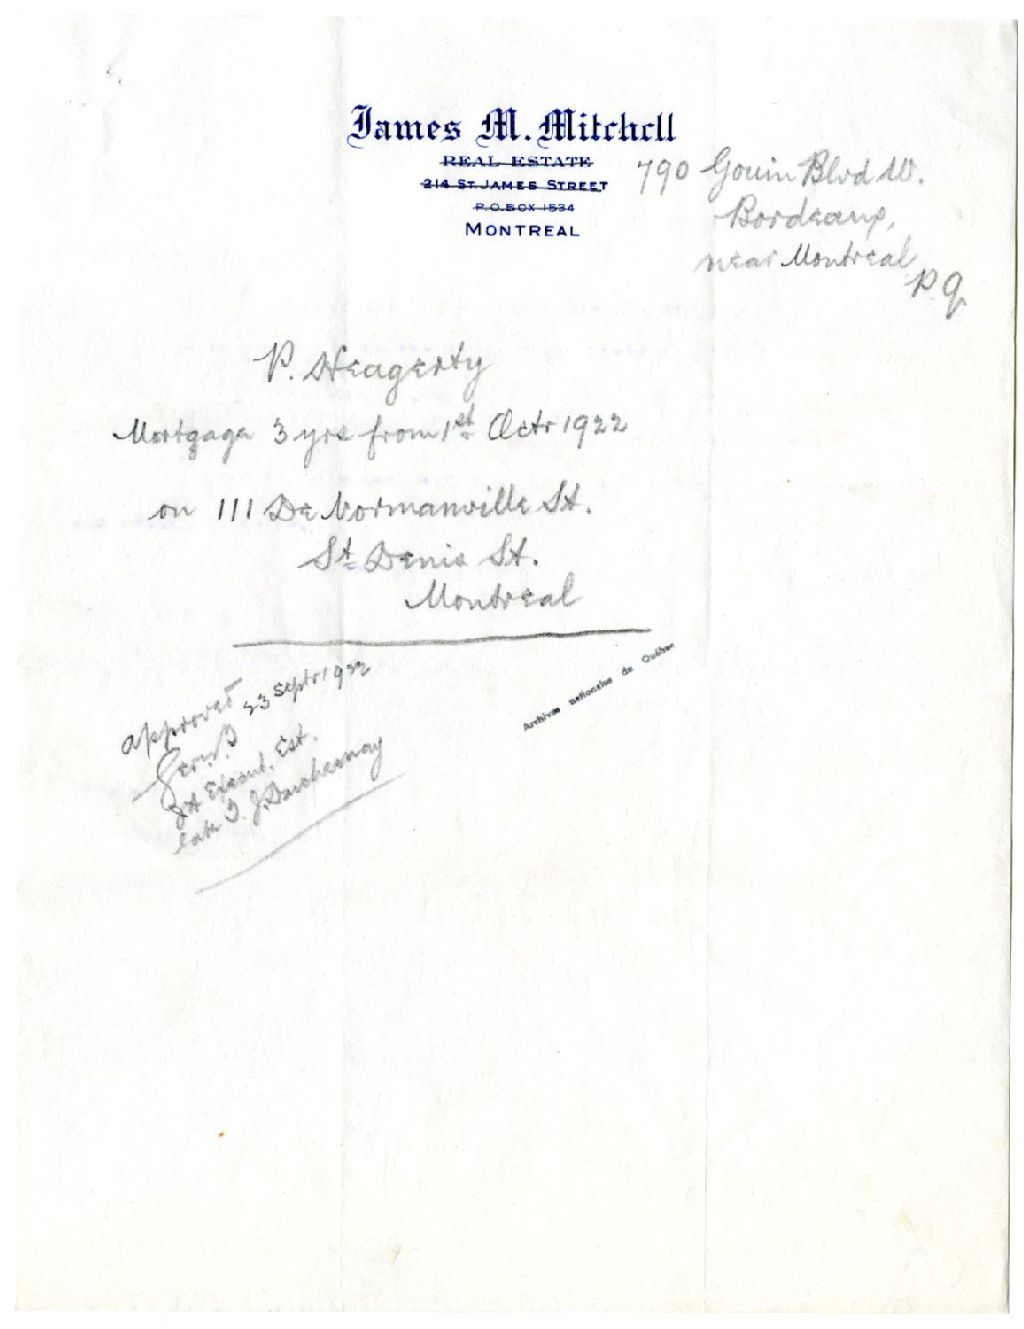 James M. Mitchell
REAL ESTATE
214 ST. JAMES STREET
P.O. BOX 1534
MONTREAL
790 Gouin Blvd W.
Bordeaux,
near Montreal
P Q
P. Heagerty
Mortgage 3 yrs from 1st Octr 1922
on 111 De Normanville St.
St Denis St.
Montreal
Archives nationales du Québec
approved 23 Septr 1922
Est.
late T. J. Duchesnay